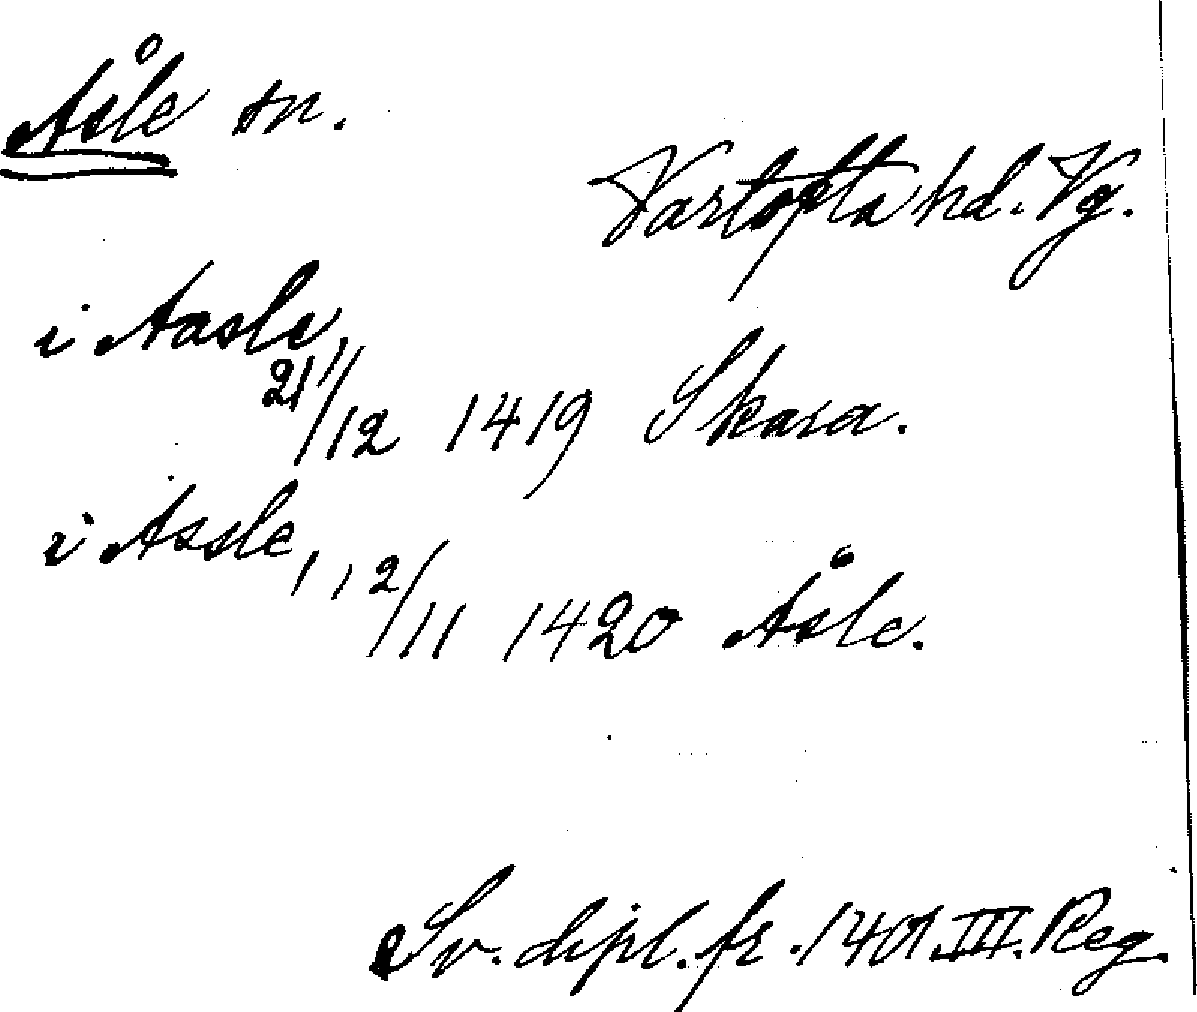 Åsle sn.
Vartofta hd. Vg.
i Aasle,
21/12 1419 Skara.
i Assle,
12/11 1420 Åsle.
Sv. dipl. fr. 1401 III. Reg.